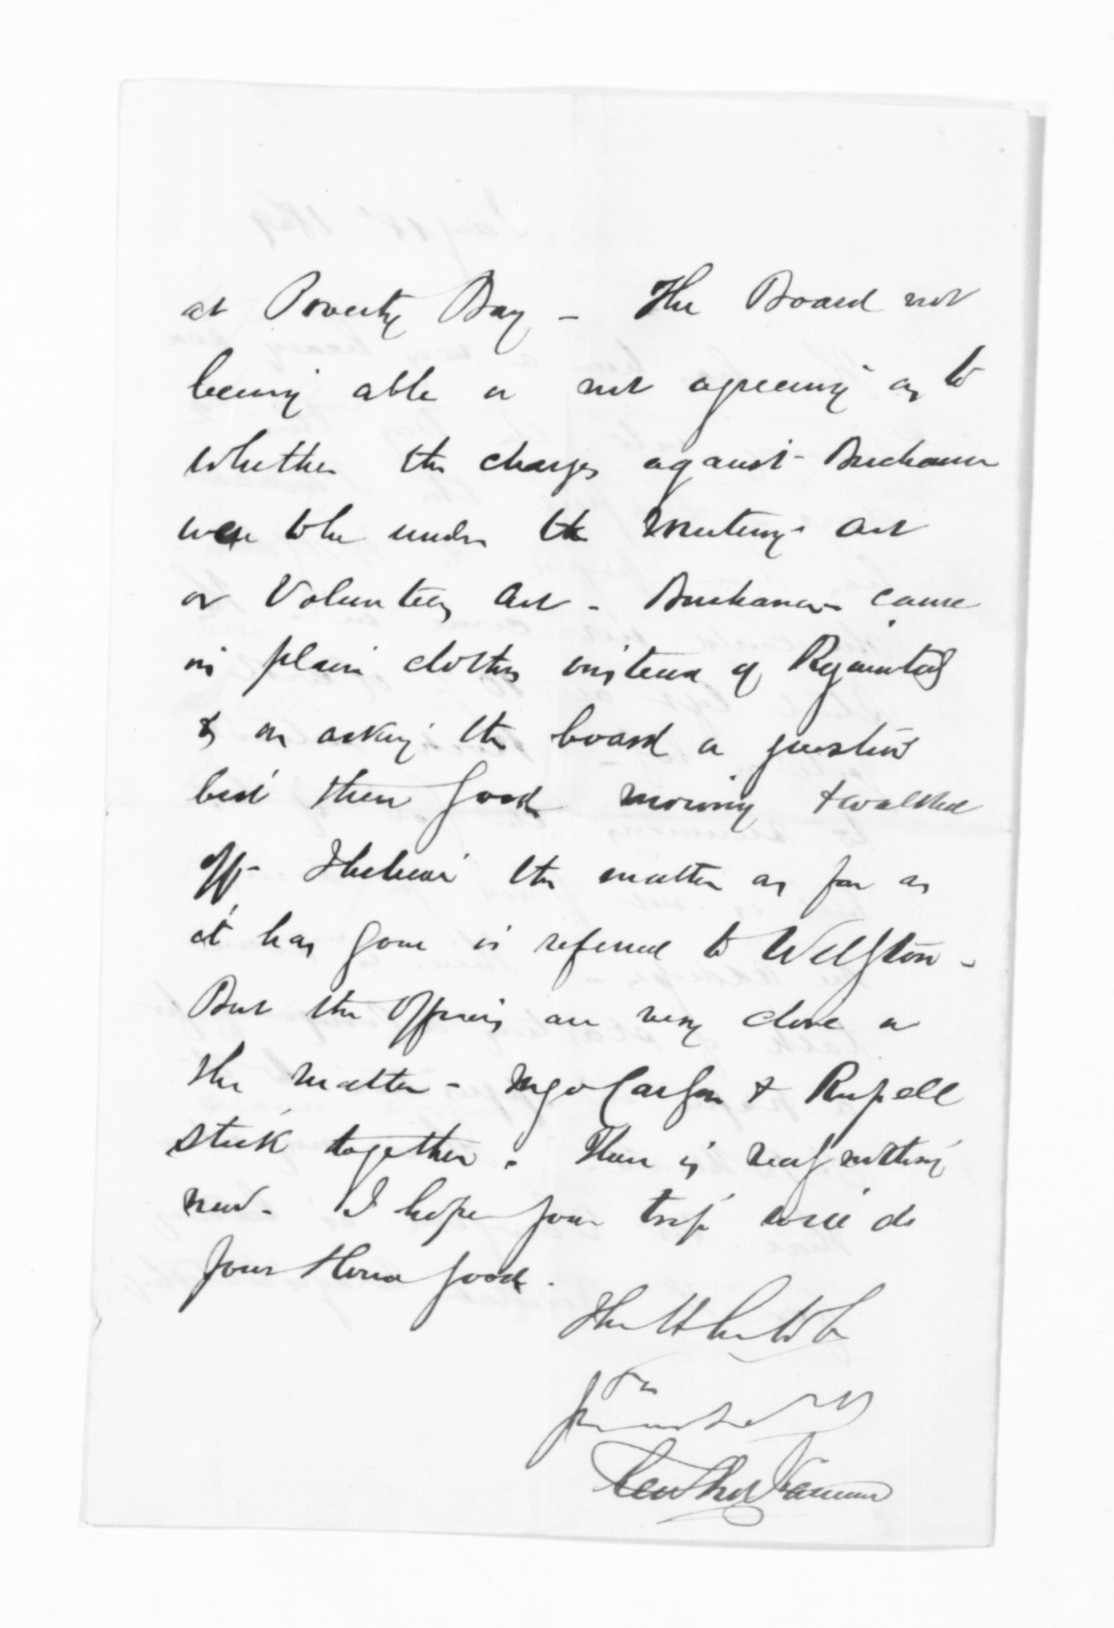 at Poverty Bay - The Board not
being able or not agreeing as to
whether the charges against Buchanan
were to be under the Mutiny Act
or Volunteers Act - Buchanan came
in plain clothes instead of Regimentals
& on asking the board a question
bid them good morning & walked
off - I believe the matter as far as
it has gone is referred to Welgton -
But the Officers are very close on
the matter - Carlyon & Russell
stick together. There is really nothing
new - I hope your trip will do
your Honor good.